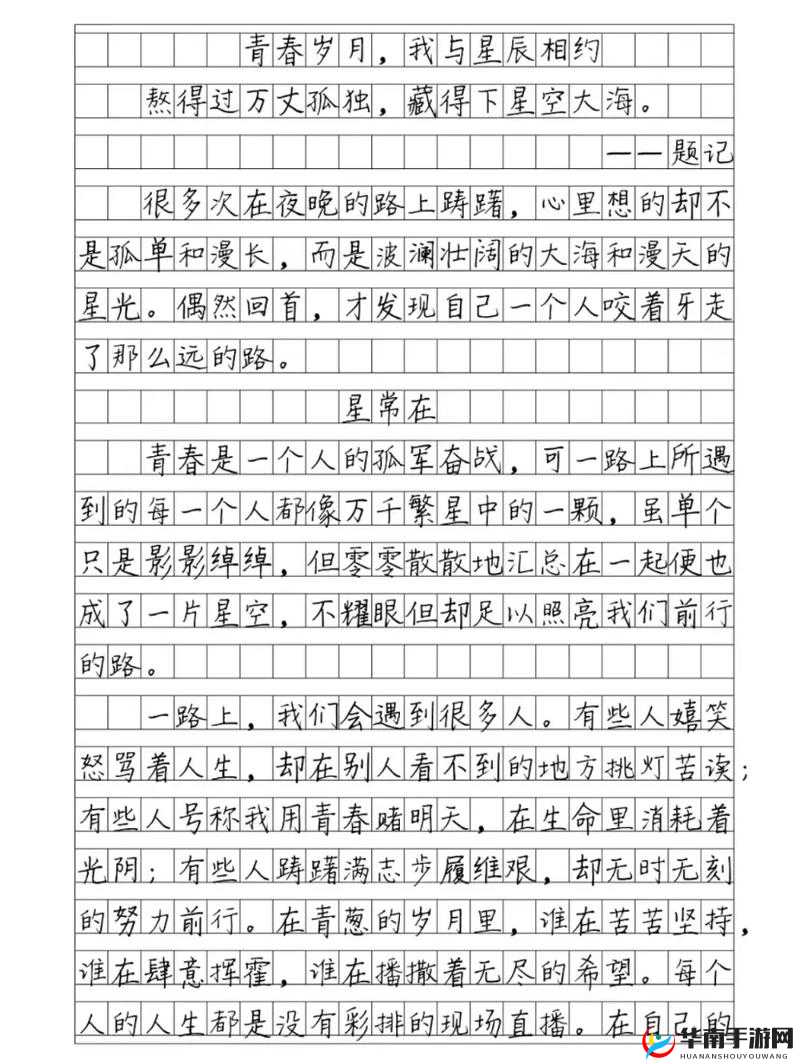 青春岁月，我与星辰相约
熬得过万丈孤独，藏得下星空大海。
——题记
很多次在夜晚的路上踌躇，心里想的却不
是孤单和漫长，而是波澜壮阔的大海和漫天的
星光。偶然回首，才发现自己一个人咬着牙走
了那么远的路。
星常在
青春是一个人的孤军奋战，可一路上所遇
到的每一个人都像万千繁星中的一颗，虽单个
只是影影绰绰，但零零散散地汇总在一起便也
成了一片星空，不耀眼但却足以照亮我们前行
的路。
一路上，我们会遇到很多人。有些人嬉笑
怒骂着人生，却在别人看不到的地方挑灯苦读；
有些人号称我用青春赌明天，在生命里消耗着
光阴；有些人踌躇满志步履维艰，却无时无刻
的努力前行。在青葱的岁月里，谁在苦苦坚持，
谁在肆意挥霍，谁在播撒着无尽的希望。每个
人的人生都是没有彩排的现场直播。在自己的
华南手游网
HUANANSHOUYOUWANG